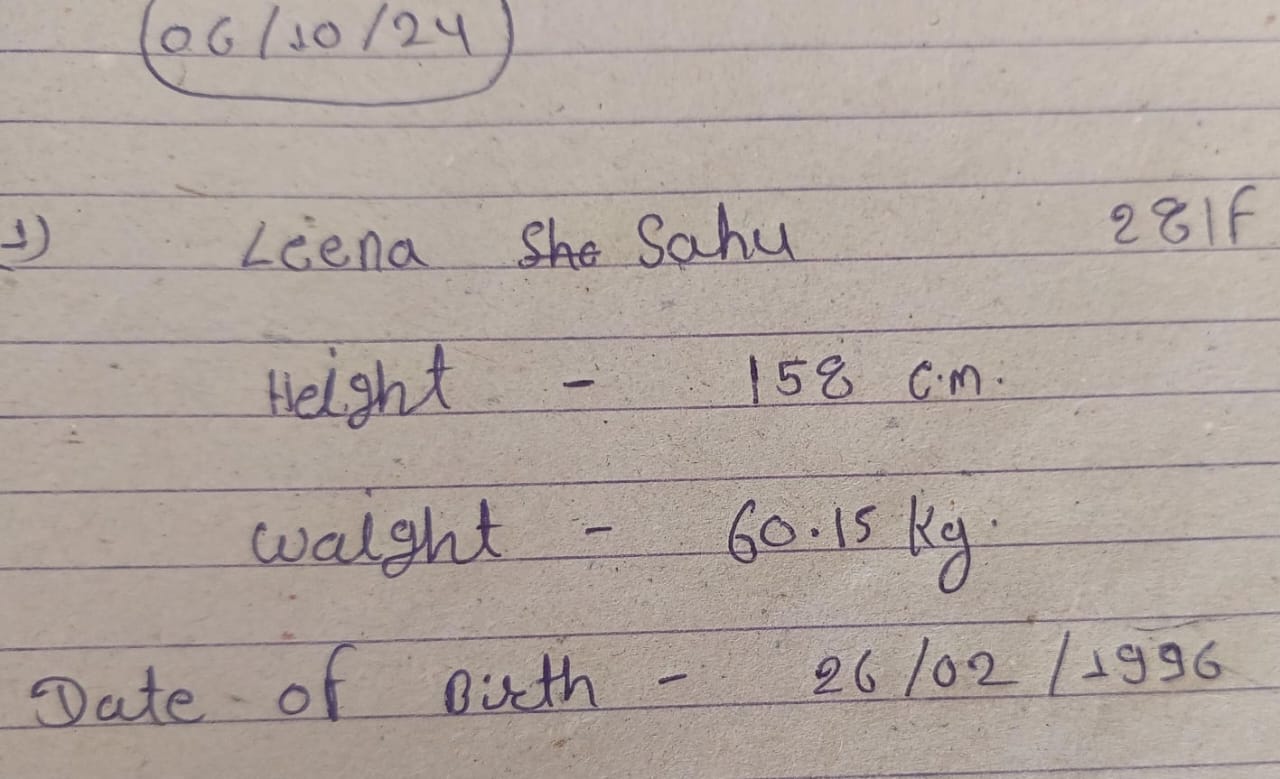 06/10/24
1) Leena She Sahu 28|F
Height - 158 c.m.
Waight - 60.15 Kg.
Date of Birth - 26/02/1996